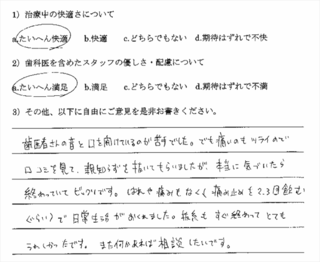 1) 治療中の快適さについて
a.たいへん快適 b.快適 c.どちらでもない d.期待はずれで不快
2) 歯科医を含めたスタッフの優しさ・配慮について
a.たいへん満足 b.満足 c.どちらでもない d.期待はずれで不満
3) その他、以下に自由にご意見を是非お書きください。
歯医者さんの音と口を開けているのが苦手でした。でも痛いのもツライので
口コミを見て、親知らずを抜いてもらいましたが、本当に気づいたら
終わっていてビックリです。はれや痛みもなく痛み止めを2.3回飲む
ぐらい)で日常生活がおくれました。抜糸もすぐ終わってとても
うれしかったです。また何かあれば相談したいです。